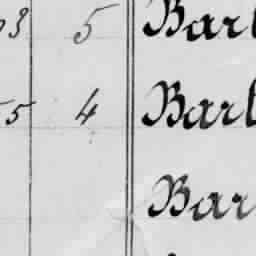 5 Barl
5 4 Barl
Bar